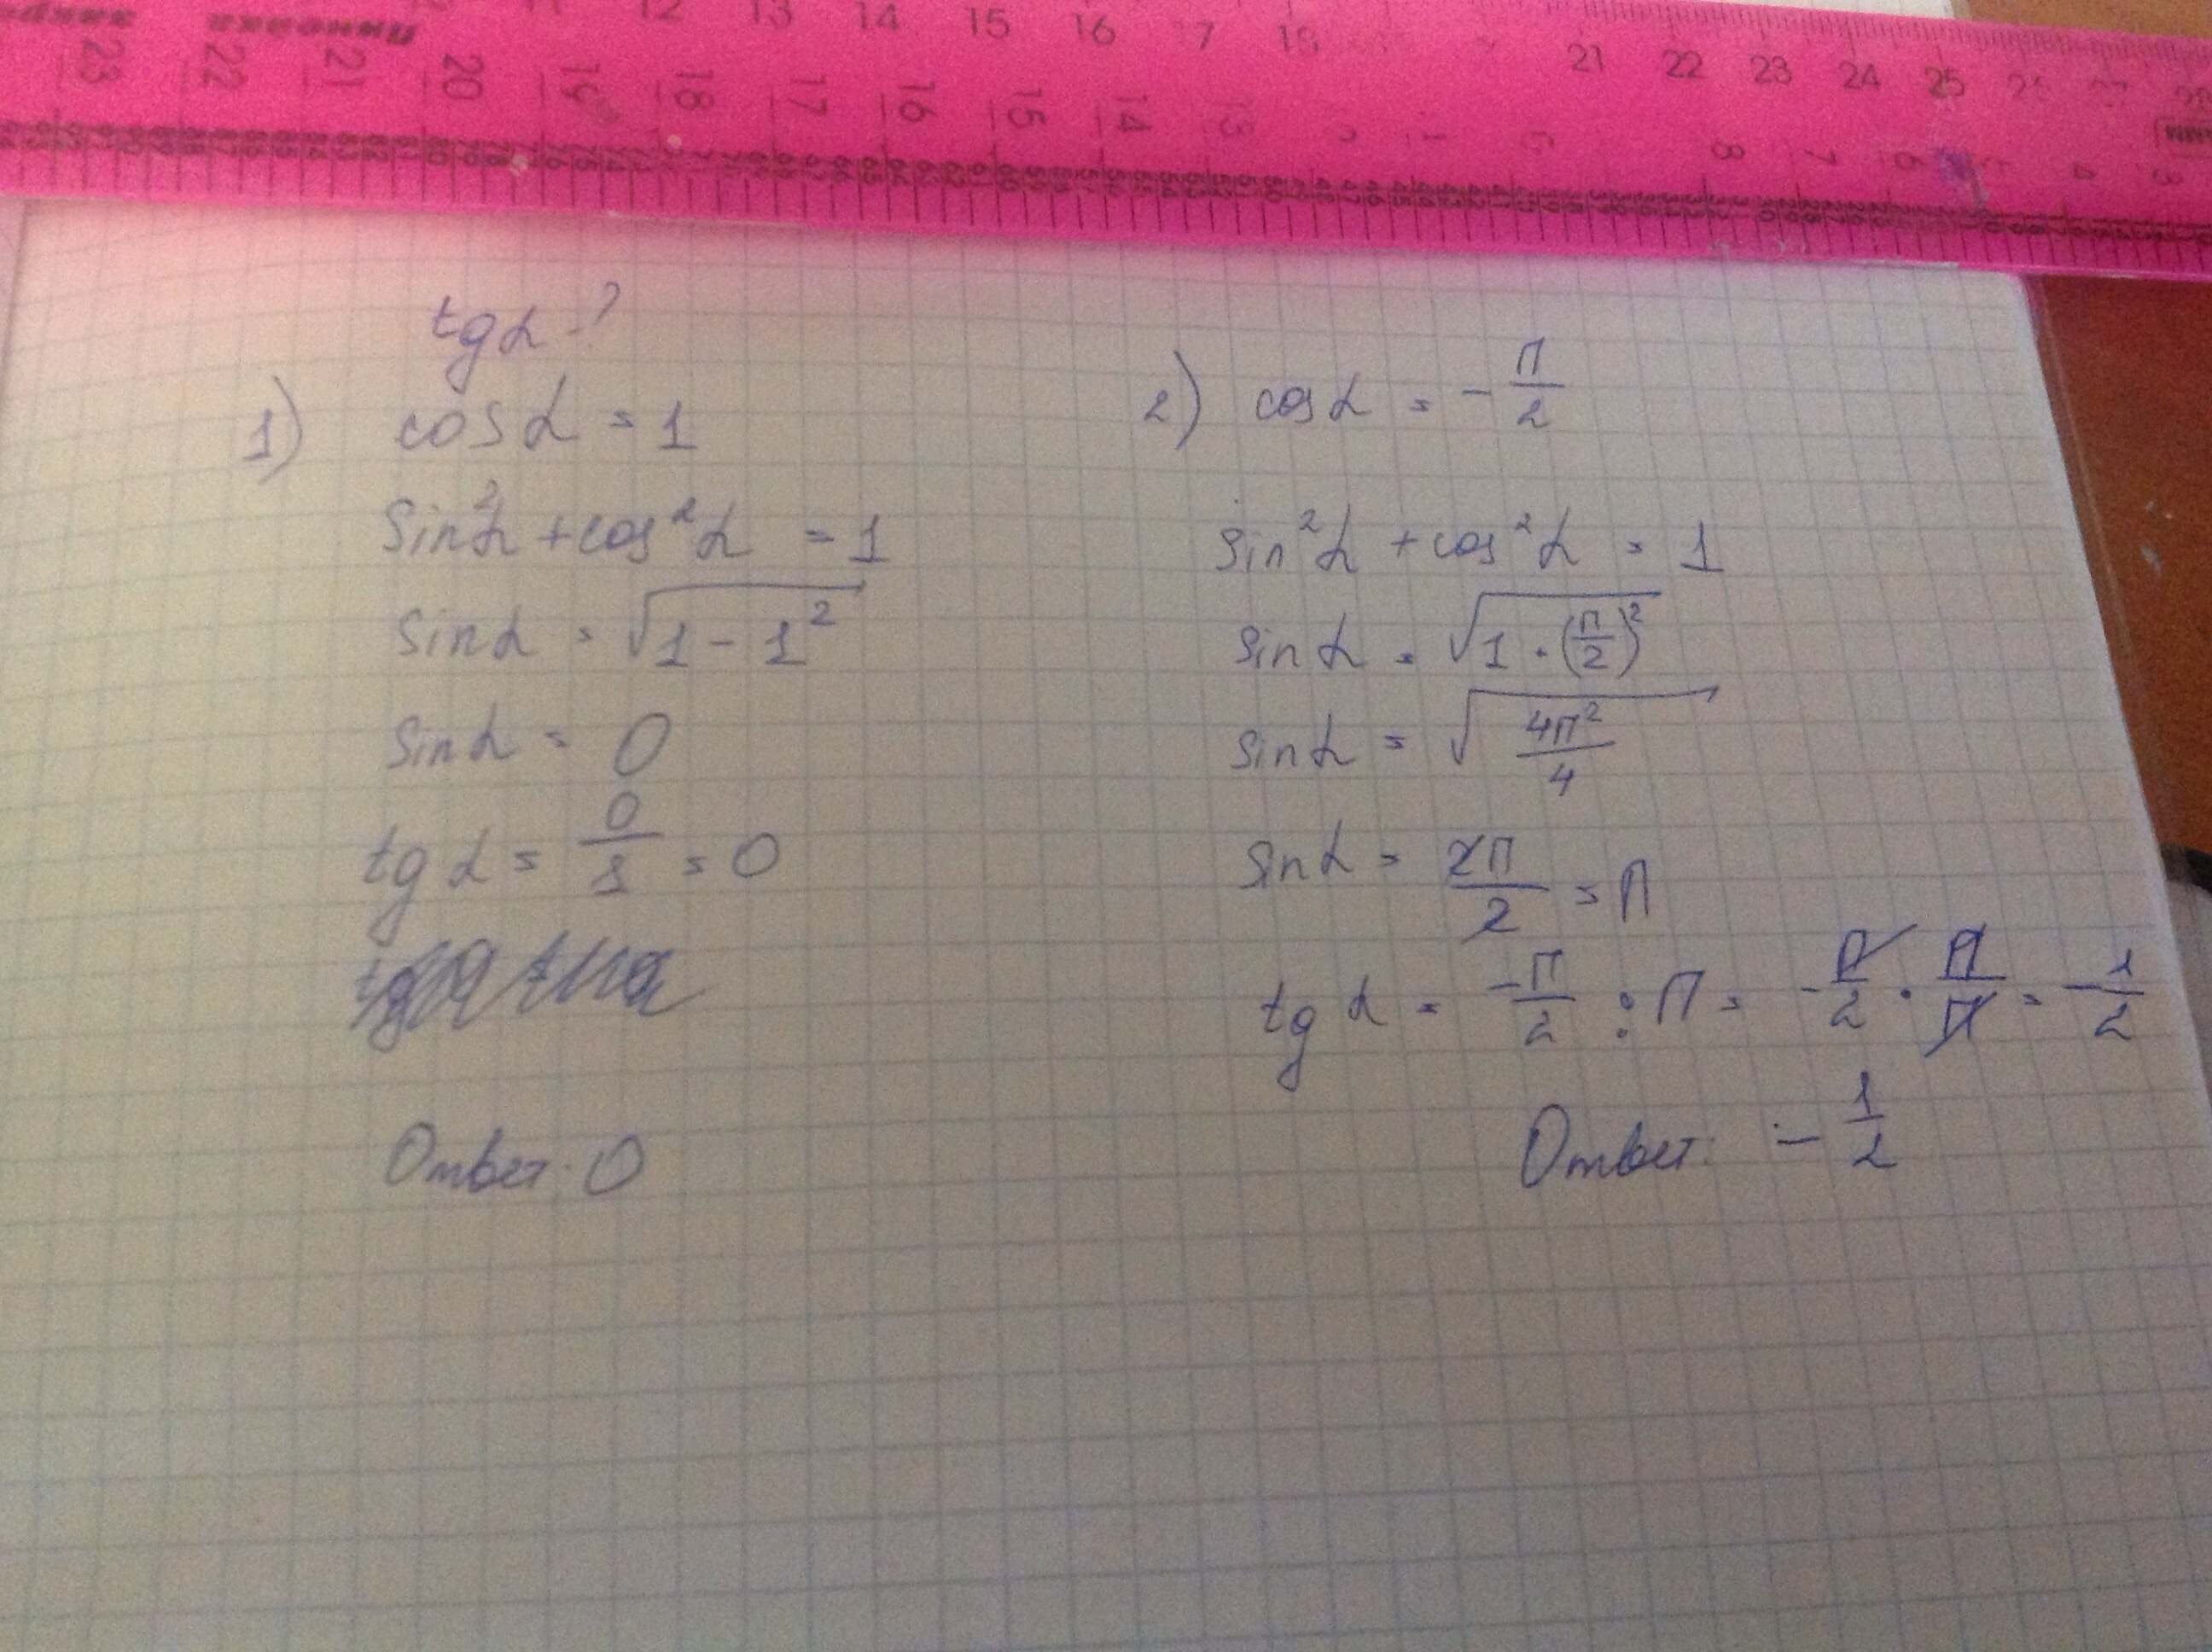 12 13 14 15 16 17 18 21 22 23 24 25
23 22 21 20 19 18 17 16 15 14 13 8 7 6 4 3
Линейка
tg α - ?
1) cos α = 1
sin²α + cos²α = 1
sin α = √(1 - 1²)
sin α = 0
tg α = 0/1 = 0
Ответ: 0
2) cos α = - П/2
sin²α + cos²α = 1
sin α = √(1 · (П/2)²)
sin α = √(4П²/4)
sin α = 2П/2 = П
tg α = -П/2 : П = -П/2 · П/П = -1/2
Ответ: - 1/2